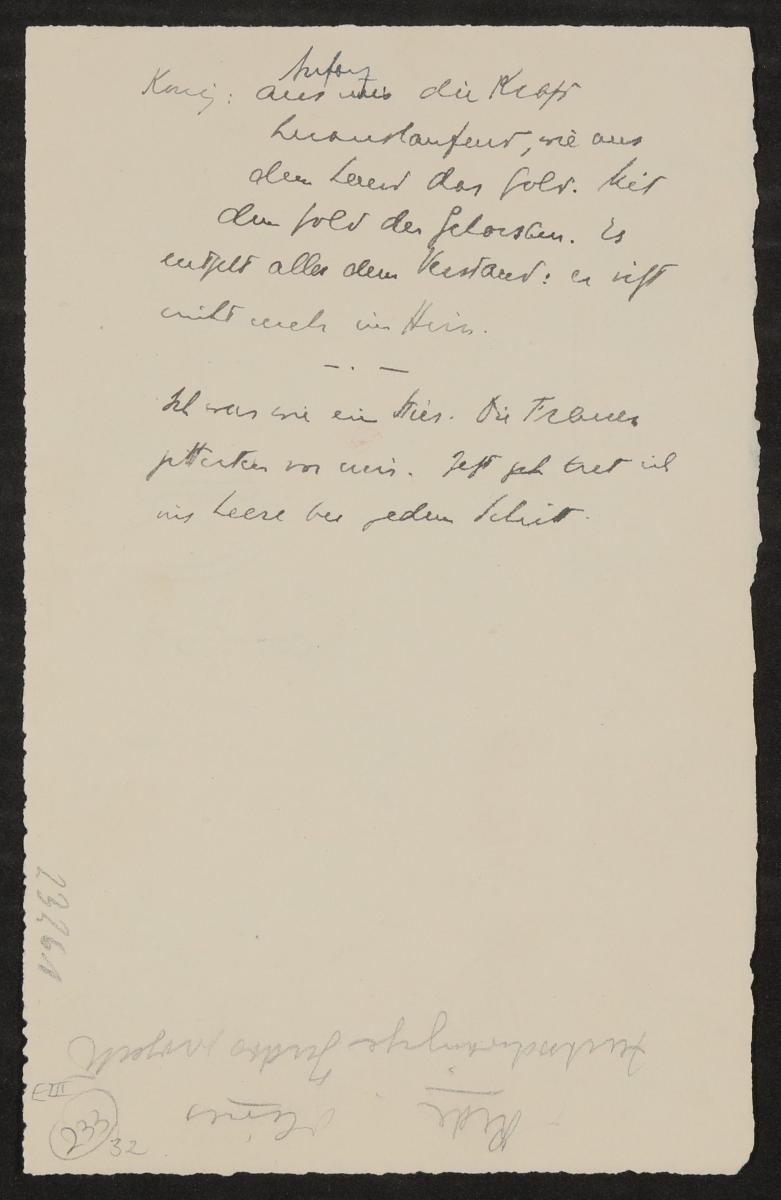 Anfang
König: aus mir die Kraft
herauslaufend, wie aus
dem Land das Gold. Mit
dem Gold der Gehorsam. Es
entgeht alles dem Verstand: er ist
nicht mehr im Hirn.
— . —
Ich war wie ein Stier. Die Frauen
zitterten vor mir. Jetzt tret ich
ins Leere bei jedem Schritt.
2326
E III
233
32
Rede